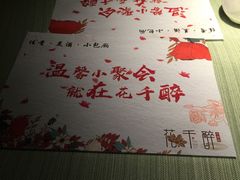 佳肴·美酒·小包厢
温馨小聚会
就在花千醉
花千醉